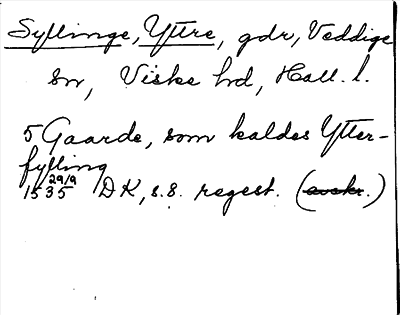 Syllinge, Yttre, gdr, Veddige
sn, Viske hd, Hall. l.
5 Gaarde, som kaldes Ytter-
fylling
29/9 1535 DK, s. 8. regest. (avskr.)